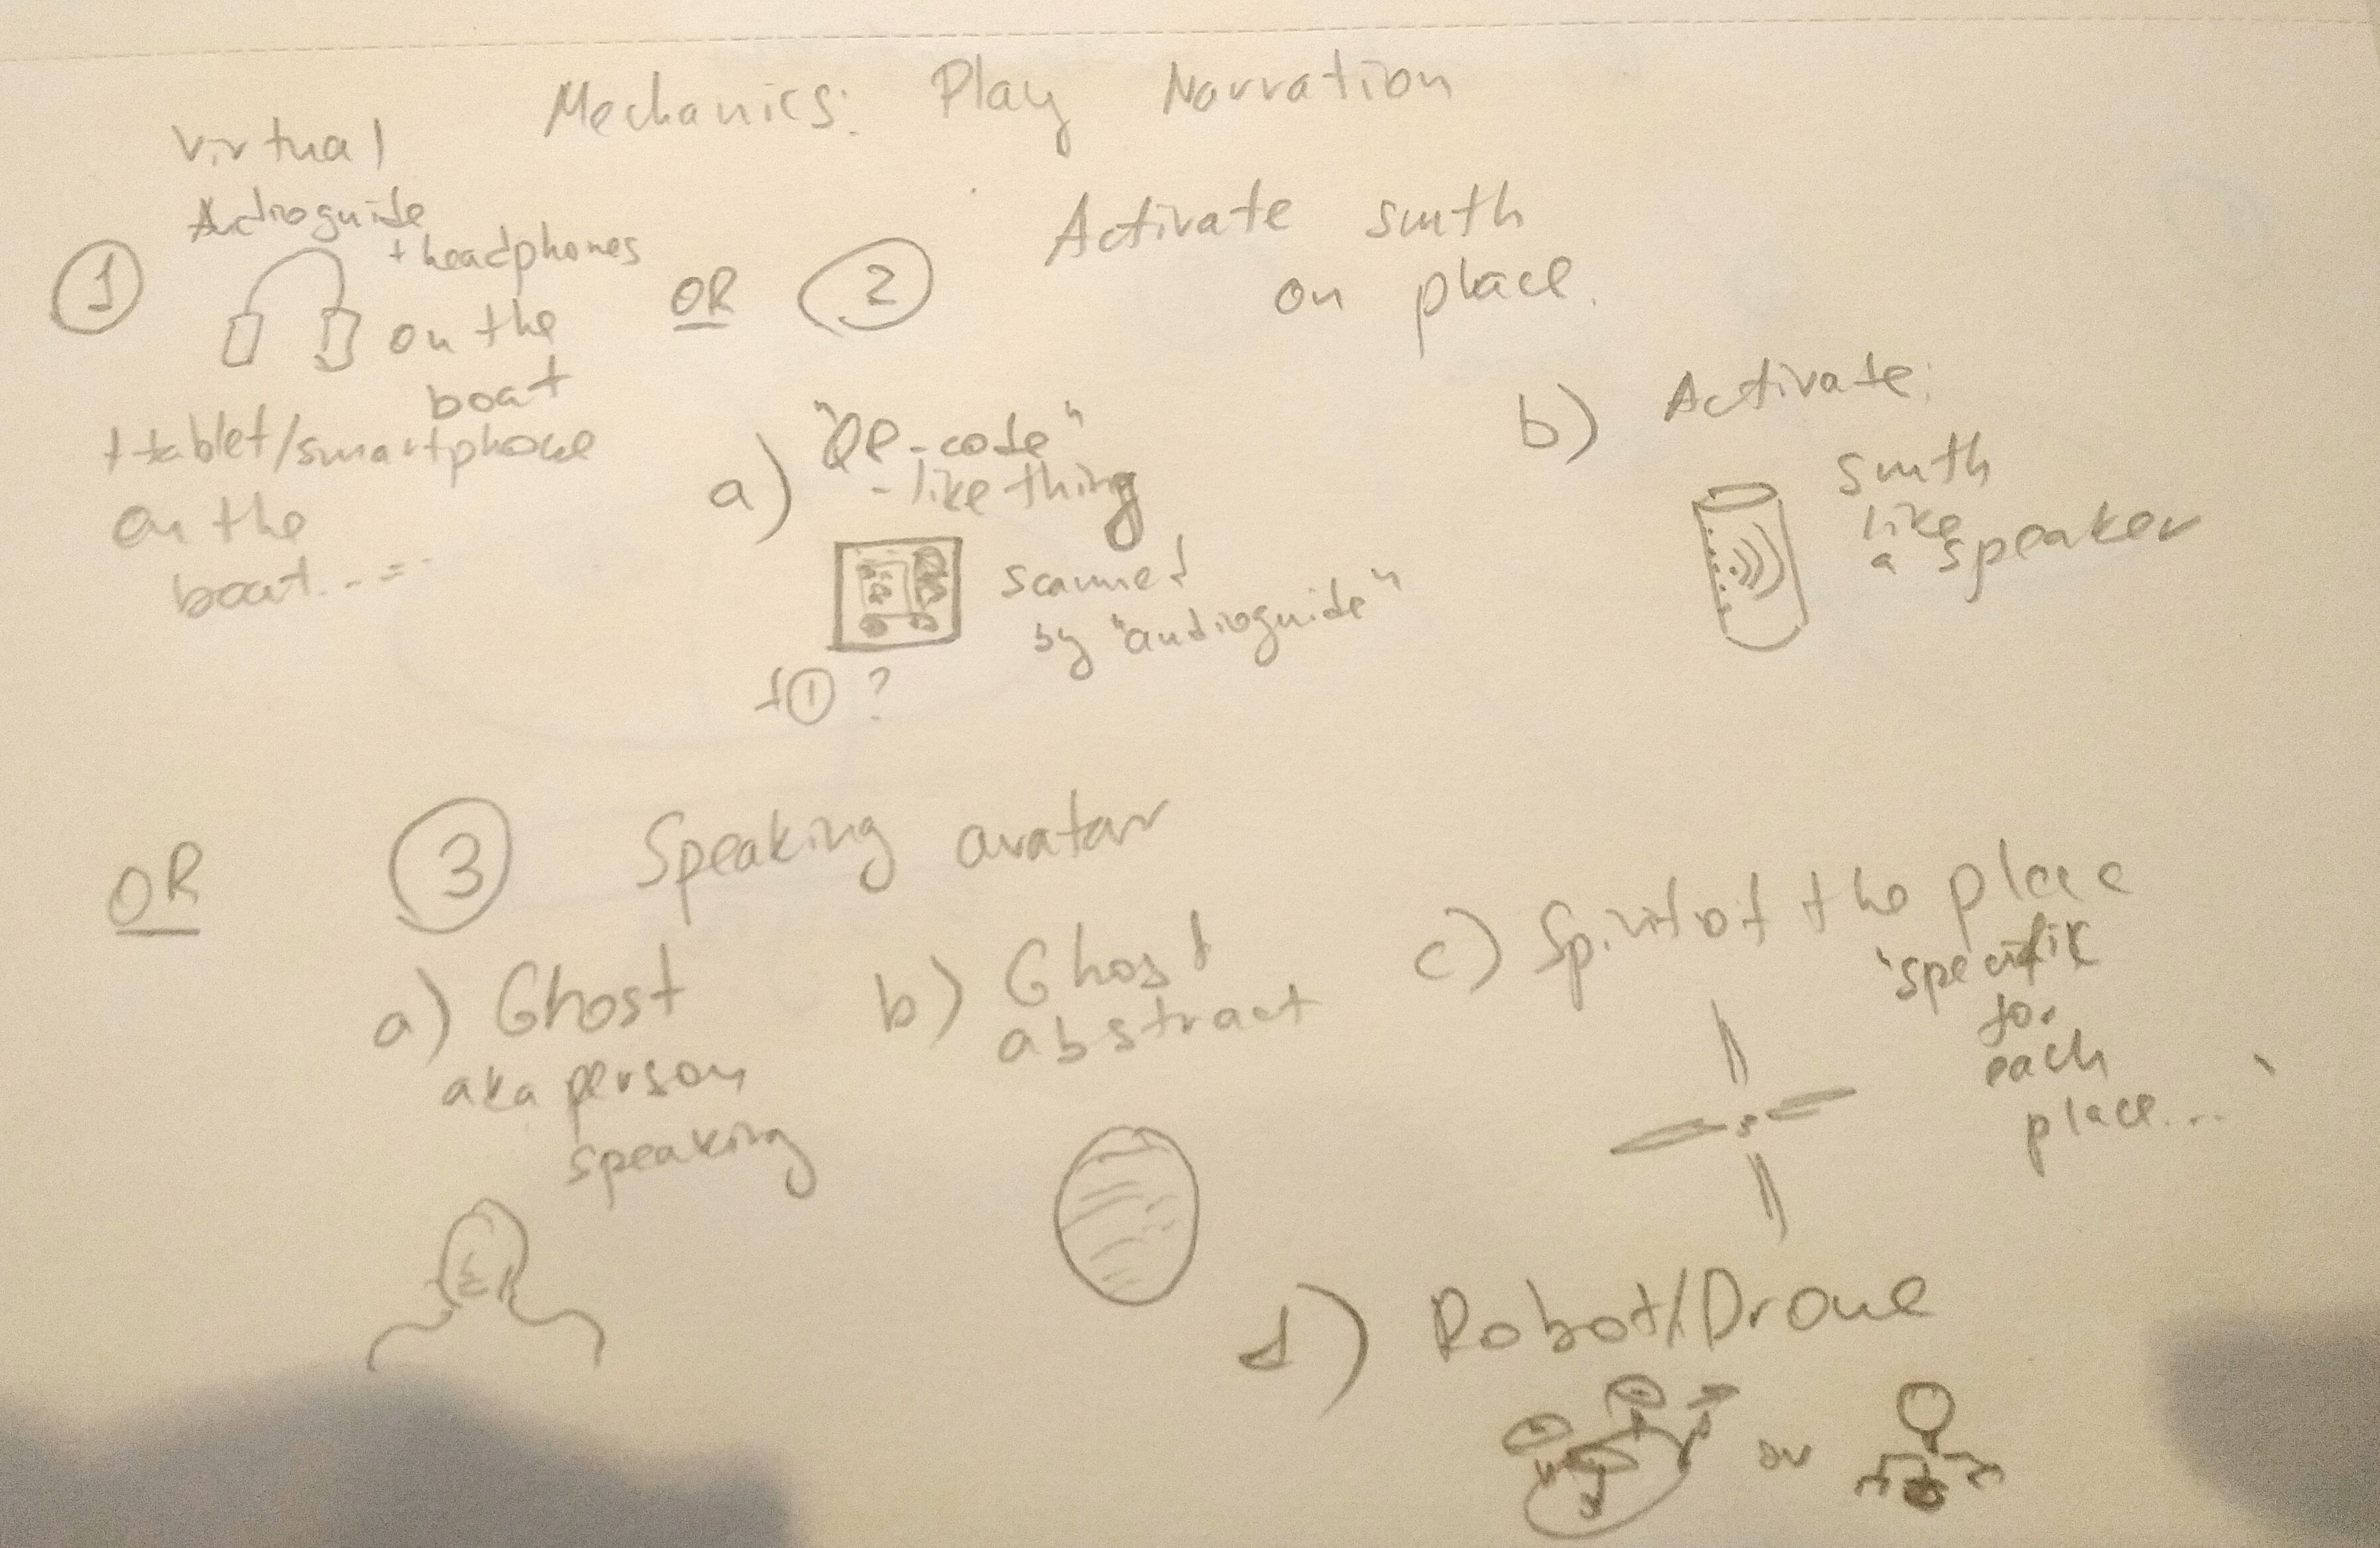 Mechanics: Play Narration
Virtual
Audioguide
+ headphones
1
on the
boat
+ tablet/smartphone
on the
boat...
OR
2
Activate smth
on place.
a) "QR-code"
- like thing
scanned
by "audioguide"
+ 1 ?
b) Activate:
smth
like
a speaker
OR
3
Speaking avatar
a) Ghost
aka person
speaking
b) Ghost
abstract
c) Spirit of the place
specifik
for
each
place...
d) Robot/Drone
or